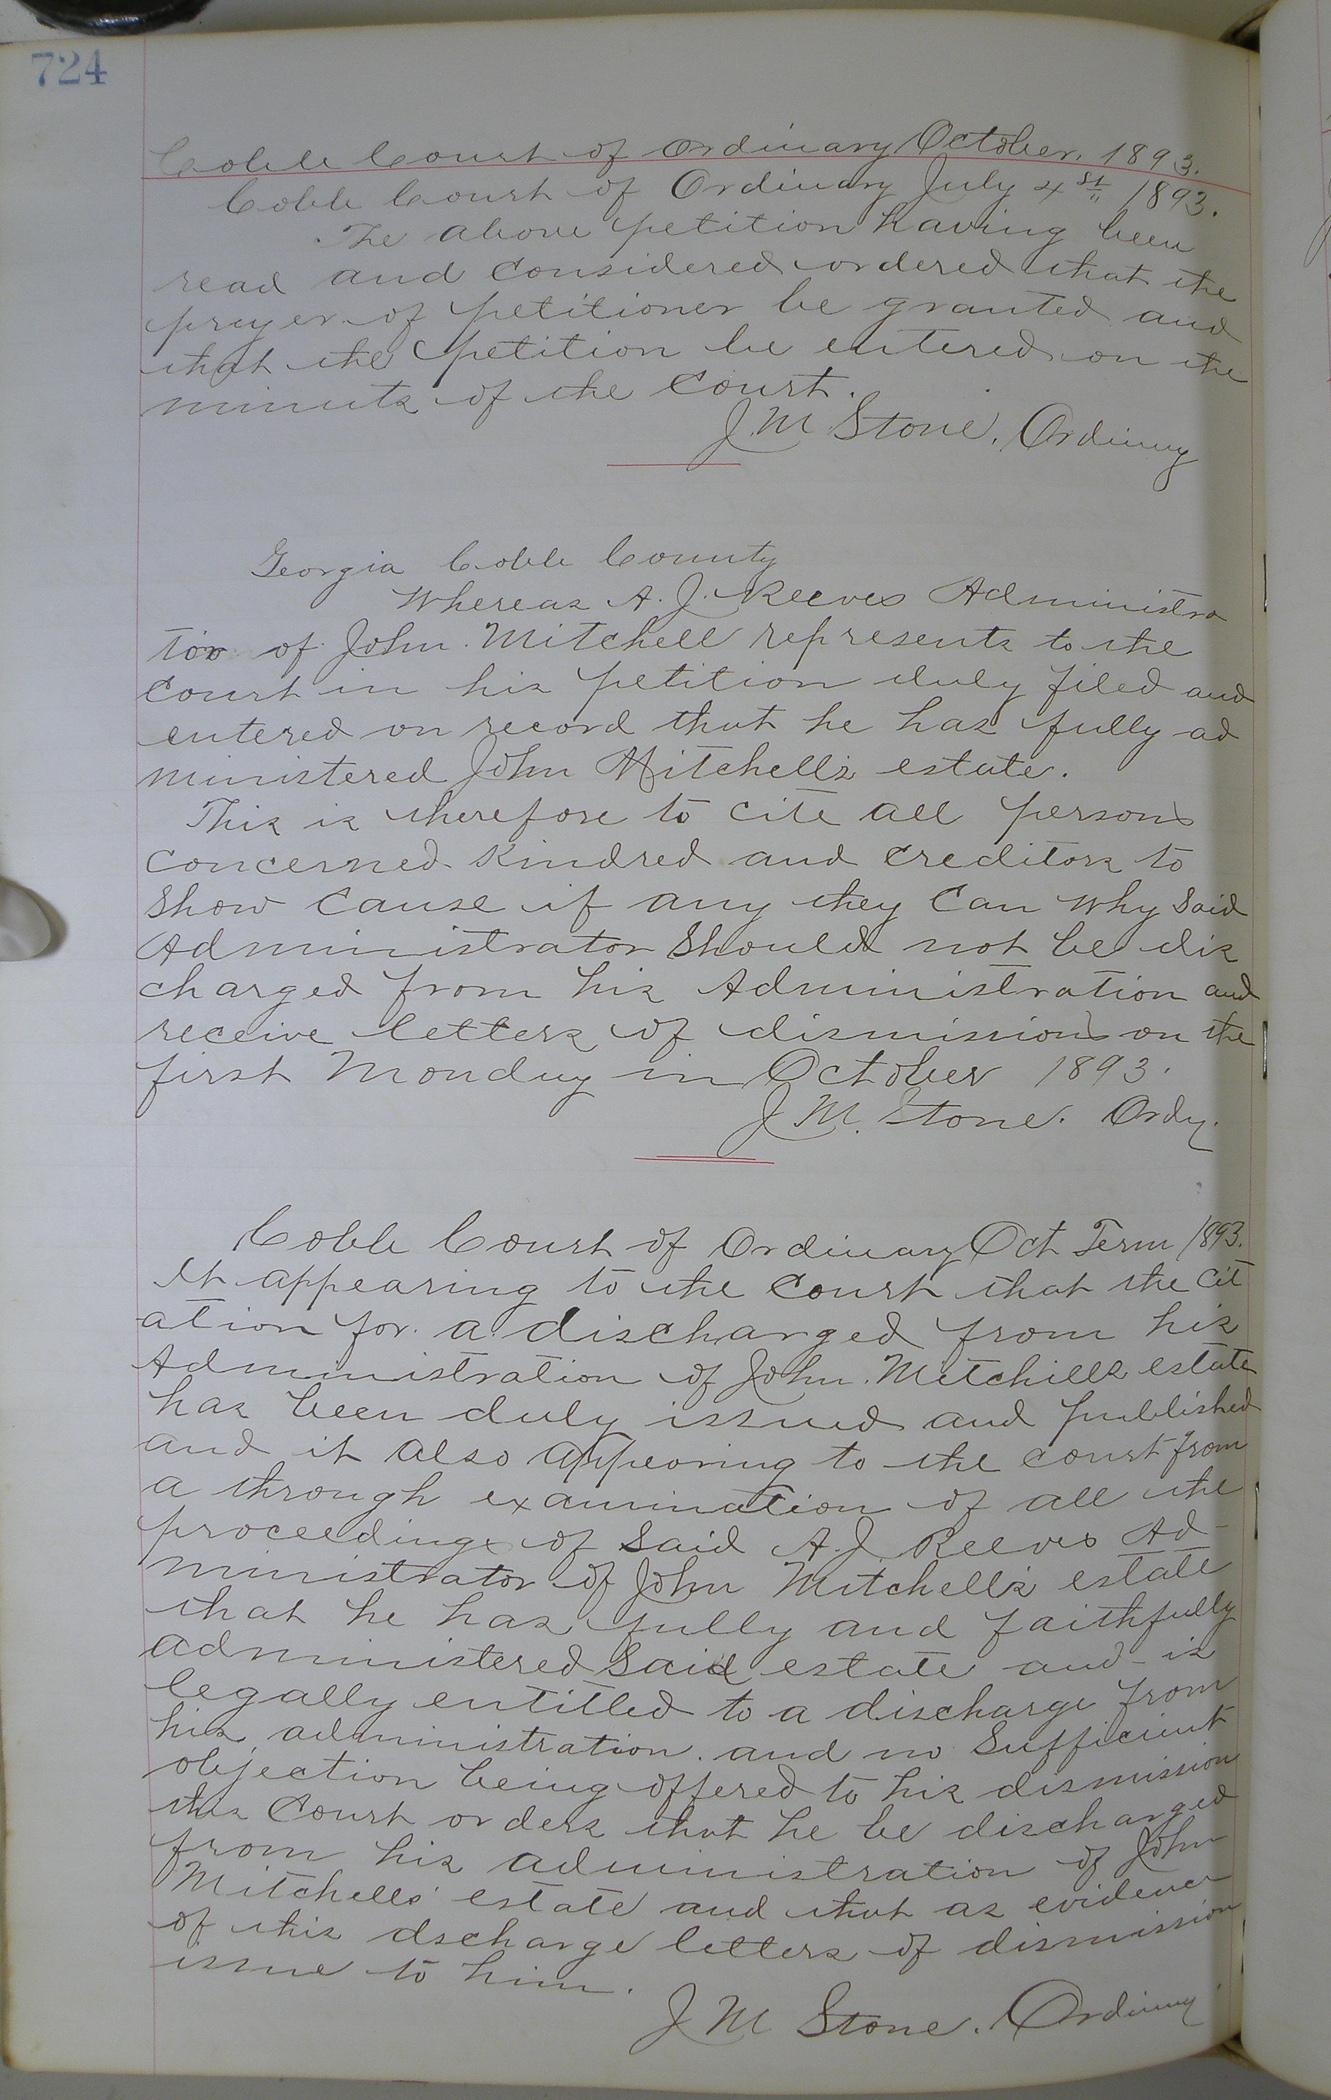 724
Cobb Court of Ordinary October, 1893.
Cobb Court of Ordinary July 4st 1893.
The above petition having been
read and considered ordered that the
prayer of petitioner be granted and
that the petition be entered on the
minuts of the Court.
J. M Stone, Ordinary
Georgia Cobb County
Whereas A. J. Reeves Administra
tor of John Mitchell represents to the
Court in his petition duly filed and
entered on record that he has fully ad
ministered John Mitchell's estate.
This is therefore to cite all persons
concerned Kindred and Creditors to
Show Cause if any they Can Why Said
Administrator Should not be dis
charged from his Administration and
receive letters of dismission on the
first Monday in October 1893.
J. M. Stone. Ordy.
Cobb Court of Ordinary Oct Term 1893.
It appearing to the Court that the Cit
ation for a discharged from his
Administration of John Mitchells estate
has been duly issued and published
and it also appearing to the court from
a through examination of all the
proceedings of Said A. J. Reeves Ad-
ministrator of John Mitchell's estate
that he has fully and faithfully
administered Said estate and is
legally entitled to a discharge from
his administration. and no Sufficient
objection being offered to his dismission
this Court orders that he be discharged
from his administration of John
Mitchells' estate and that as evidence
of this dscharge letters of dismission
issue to him.
J M Stone. Ordinary